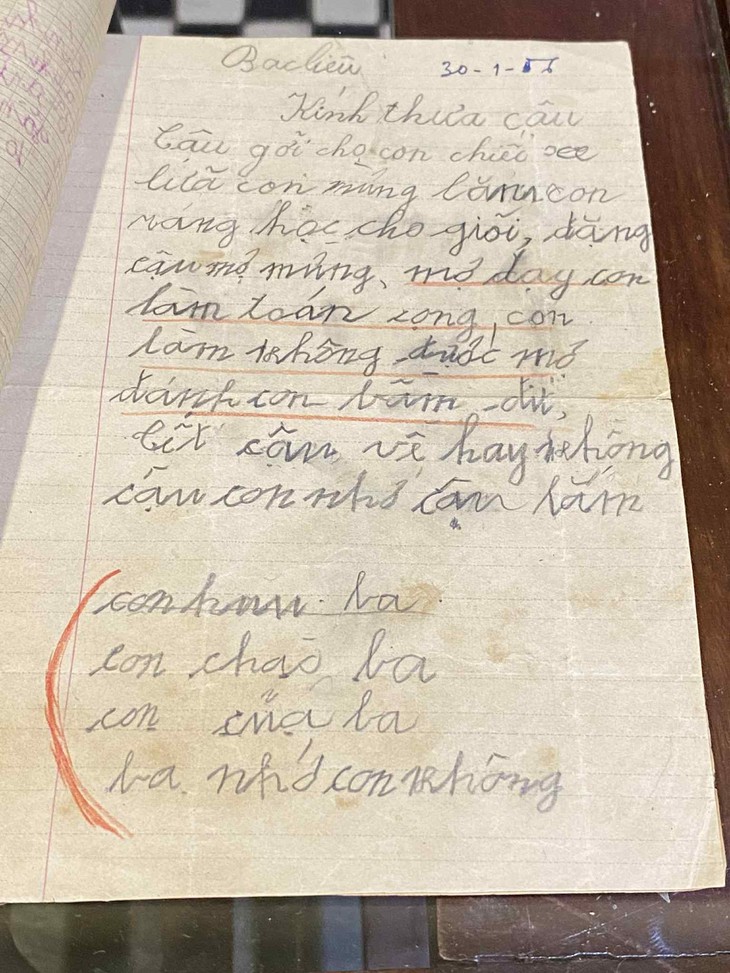 Bac liêu 30-1-56
Kính thưa cậu
Cậu gởi cho con chiếc xe
lửa con mừng lắm con
ráng học cho giỏi, đặng
cậu mợ mừng, mợ dạy con
làm toán cọng, con
làm không được mợ
đánh con bầm đít,
Tết cậu về hay không
cậu con nhớ cậu lắm
con hun ba
con chào ba
con của ba
ba nhớ con không